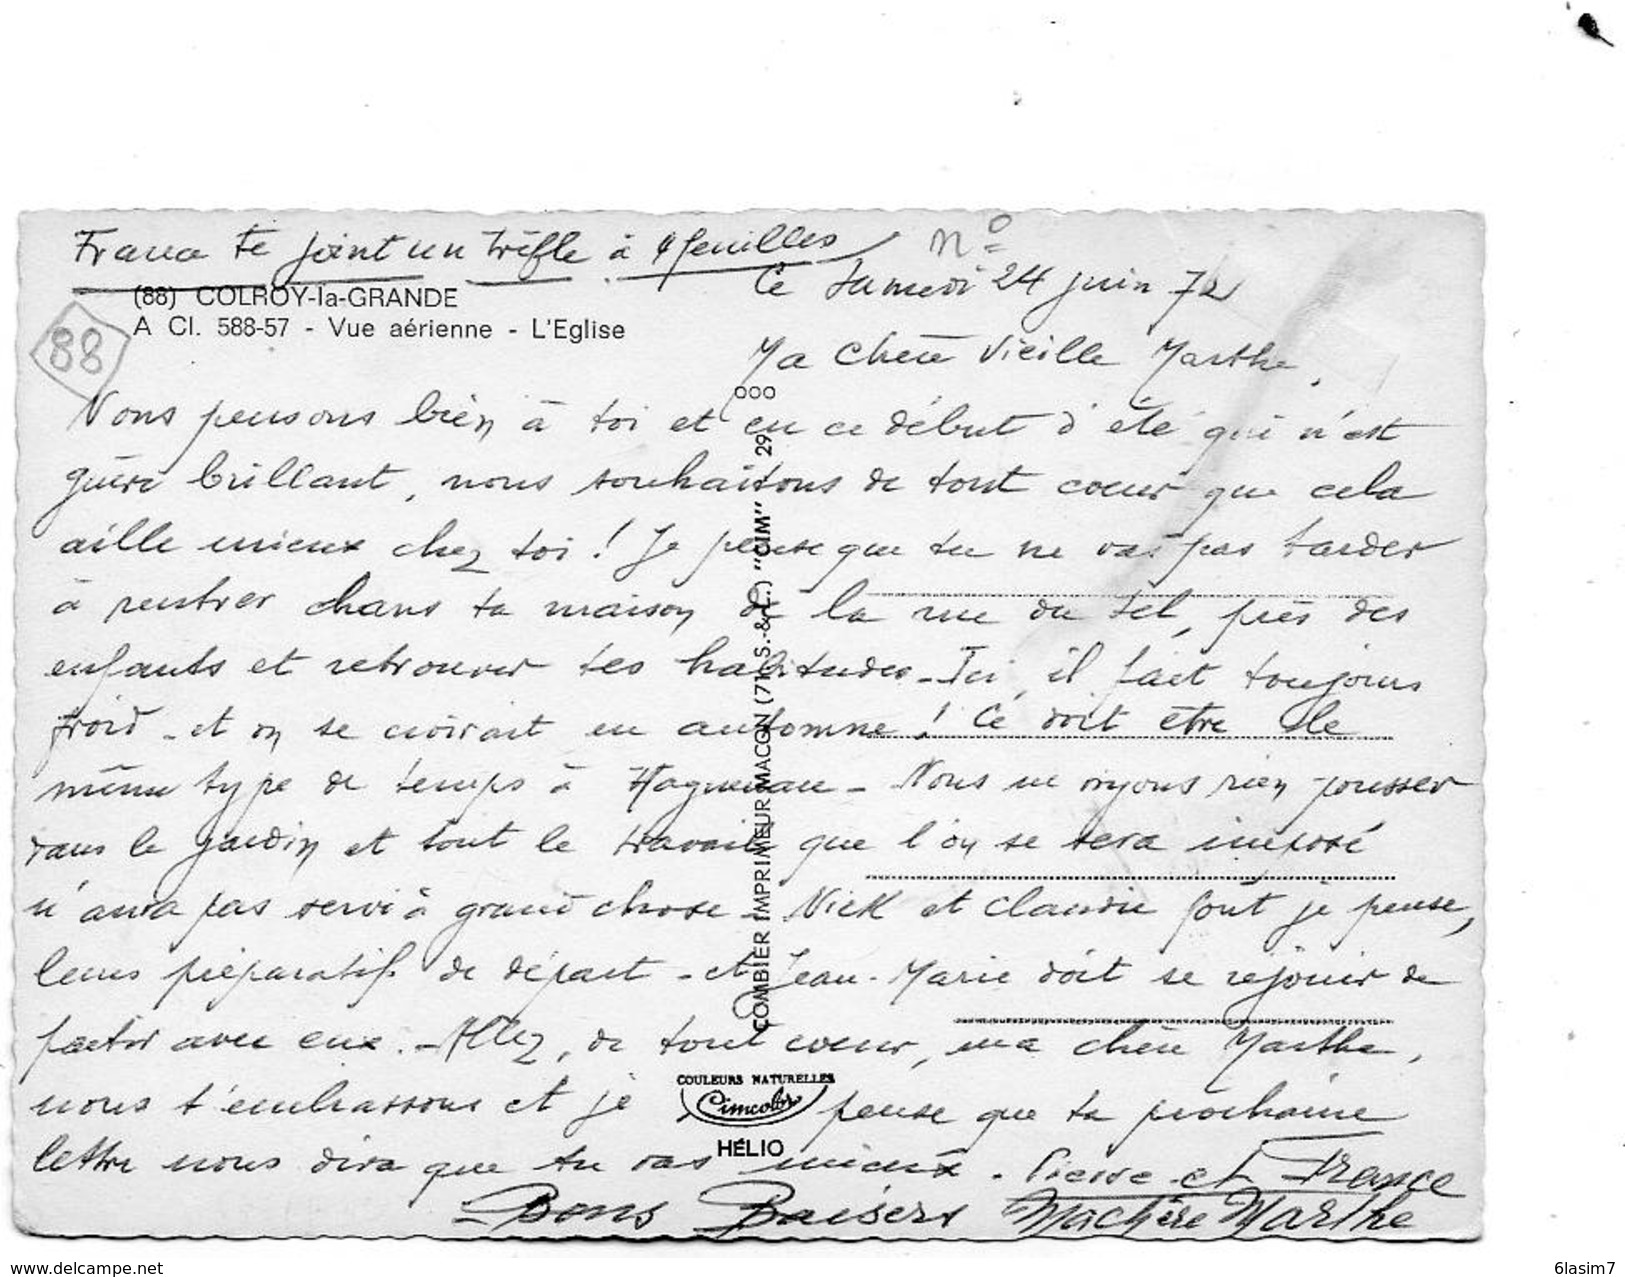 France te joint un trèfle à 4 feuilles
N°
Ce Samedi 24 juin 72
(88) COLROY-la-GRANDE
A Cl. 588-57 - Vue aérienne - L'Eglise
88
Ma chère vieille Marthe,
Nous pensons bien à toi et en ce début d'été qui n'est
guère brillant, nous souhaitons de tout coeur que cela
aille mieux chez toi ! Je pense que tu ne vas pas tarder
à rentrer dans ta maison de la rue du Sel, près des
enfants et retrouver tes habitudes - Ici, il fait toujours
froid - et on se croirait en automne ! Ce doit être le
même type de temps à Haguenau - Nous ne voyons rien pousser
dans le jardin et tout le travail que l'on se sera imposé
n'aura pas servi à grand chose - Nick et Claudie font je pense,
leurs préparatifs de départ - et Jean-Marie doit se réjouir de
partir avec eux. - Allez, de tout coeur, ma chère Marthe,
nous t'embrassons et je pense que ta prochaine
lettre nous dira que tu vas mieux. Pierre et France
Bons Baisers Ma Chère Marthe
COMBIER IMPRIMEUR MACON (71 S.-&-L.) "CIM" 29
COULEURS NATURELLES
Cimcolor
HÉLIO
delcampe.net
6lasim7